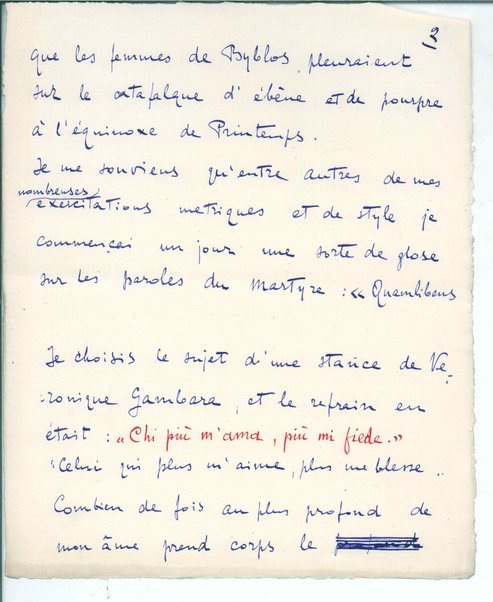 2
que les femmes de Byblos pleuraient
sur le catafalque d'ébène et de pourpre
à l'équinoxe de Printemps.
Je me souviens qu'entre autres de mes
nombreuses
exercitations metriques et de style je
commençai un jour une sorte de glose
sur les paroles du Martyre : « Quamlibens
Je choisis le sujet d'une stance de Ve-
-ronique Gambara, et le refrain en
était : « Chi più m'ama, più mi fiede. »
"Celui qui plus m'aime, plus me blesse..
Combien de fois au plus profond de
mon âme prend corps le